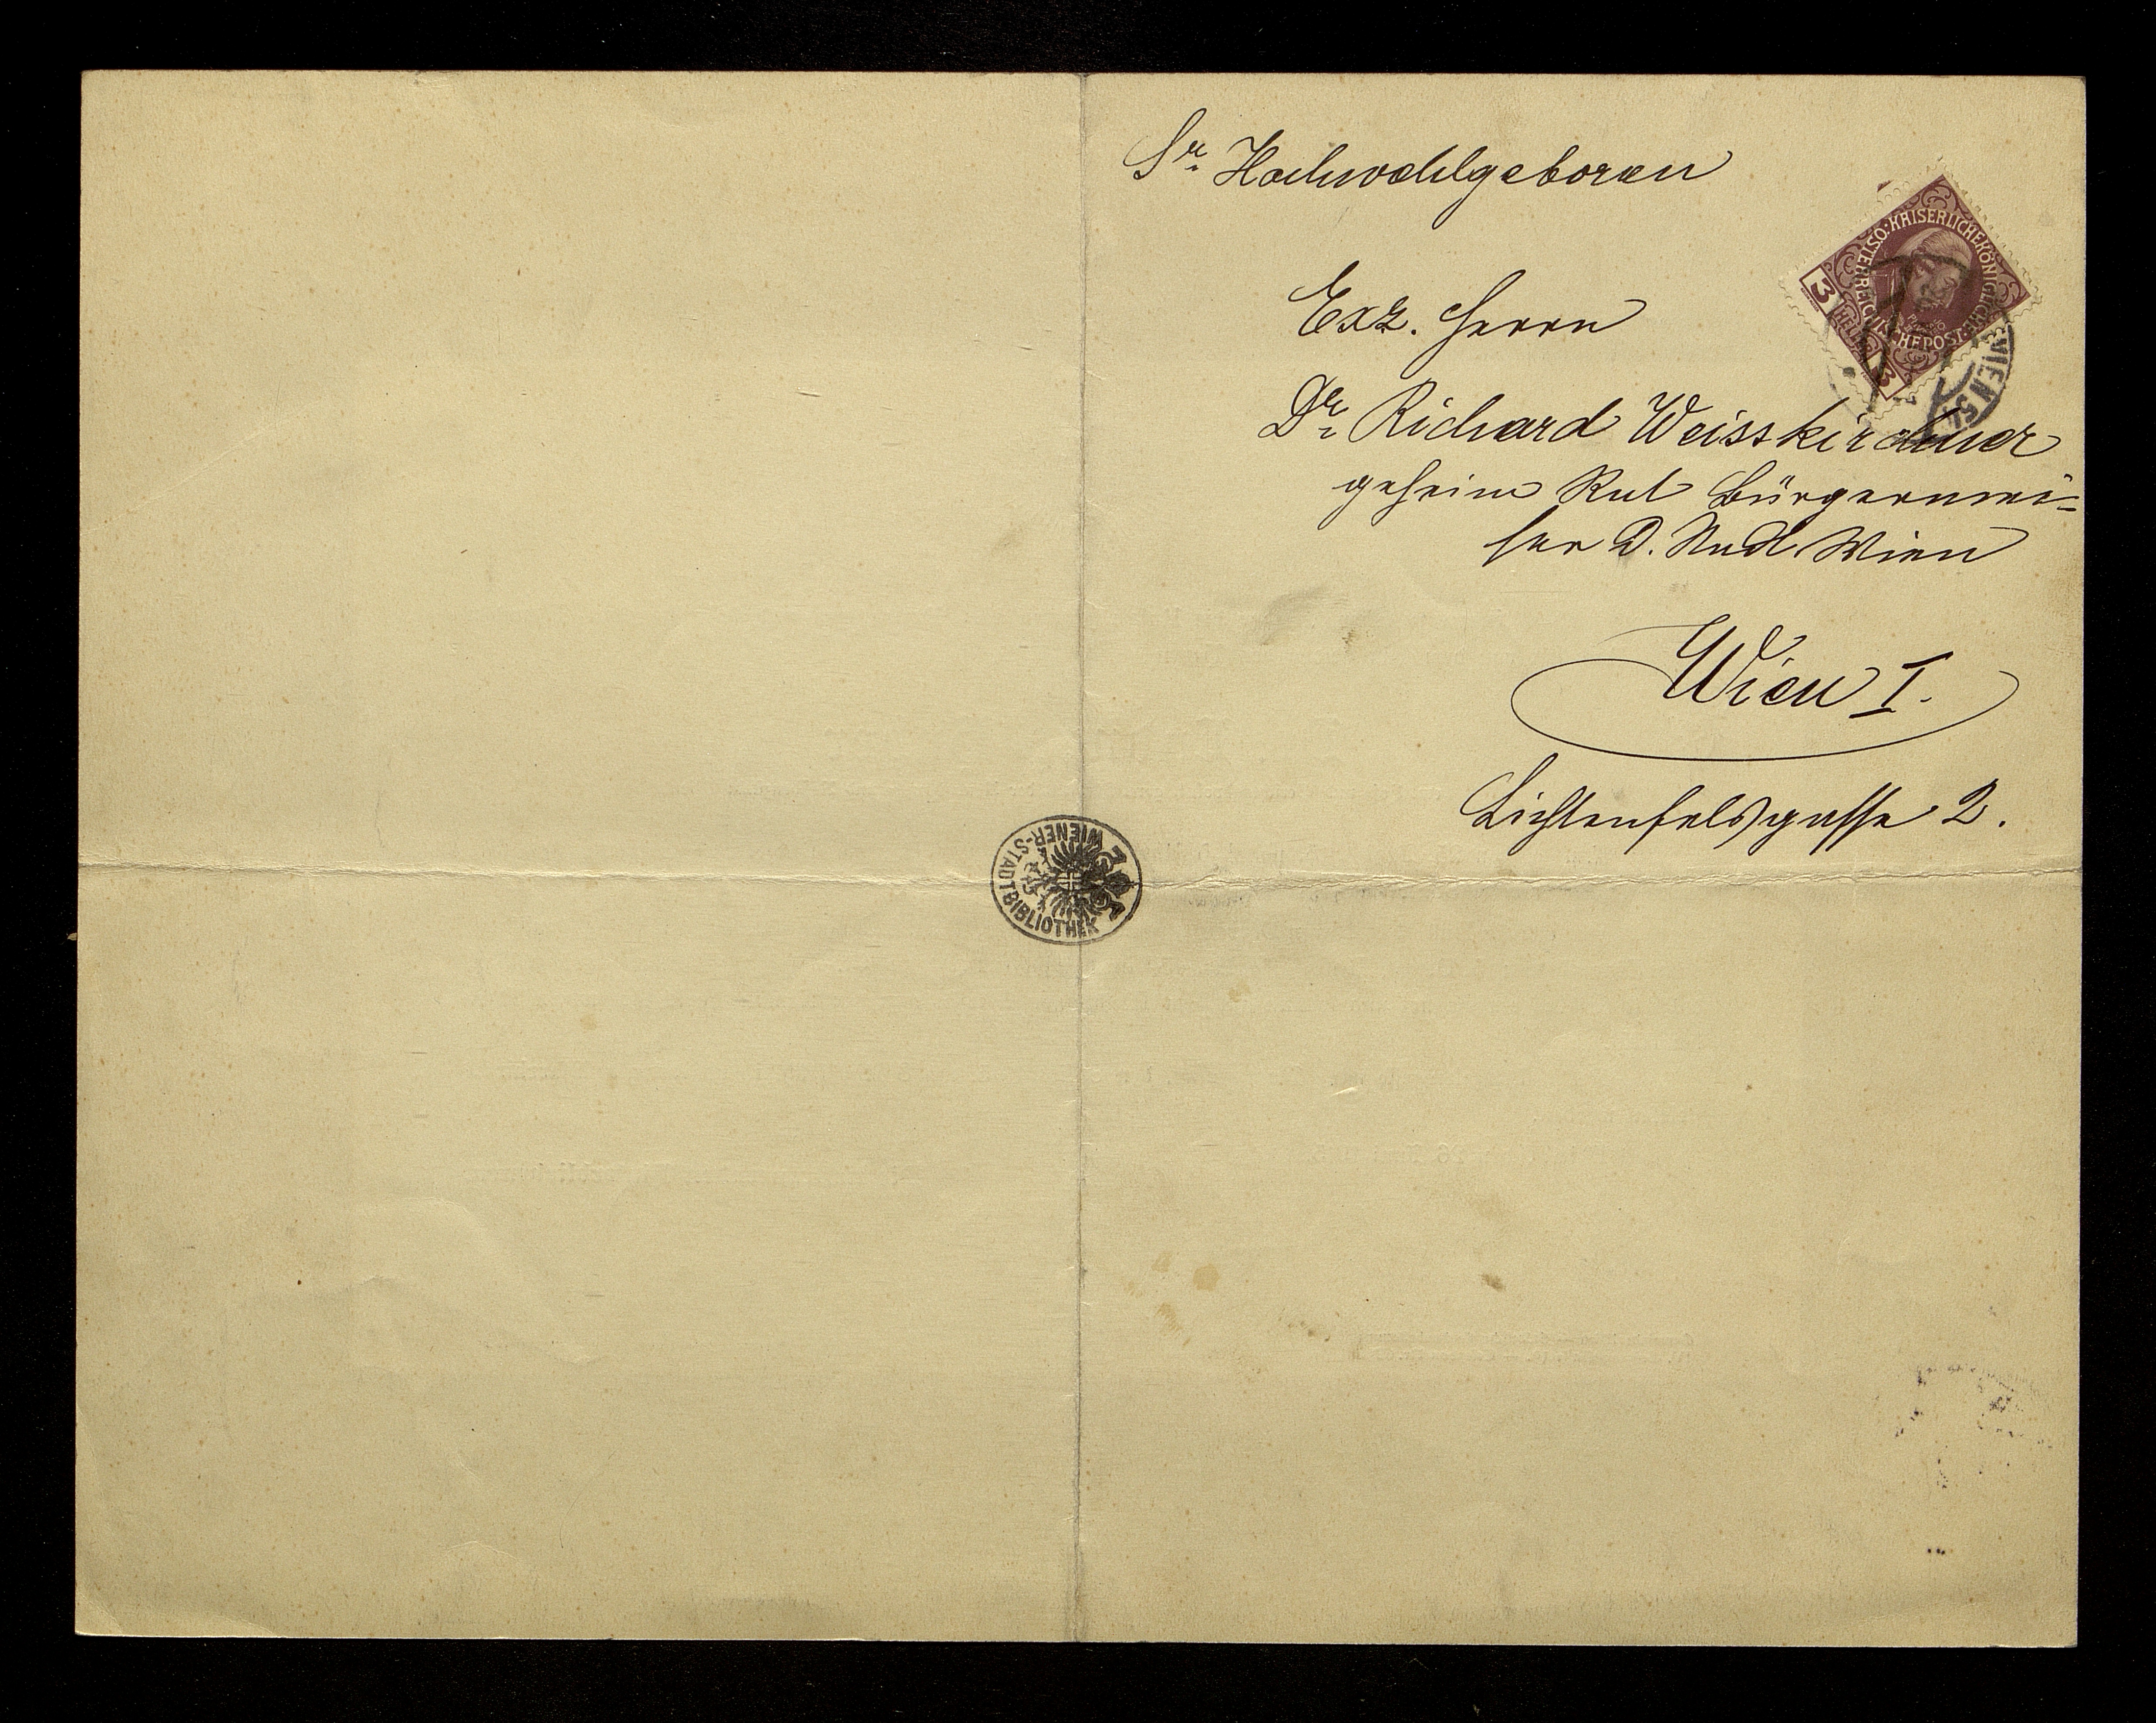 Sr. Hochwohlgeboren
Exz. Herrn
Dr. Richard Weisskirchner
geheim Rat Bürgermei=
ster d. Stadt Wien
Wien I.
Lichtenfelsgasse 2.
KAISERLICHE KÖNIGLICHE ÖSTERREICHISCHE POST
3 HELLER 3
WIEN 5
WIENER-STADT-BIBLIOTHEK